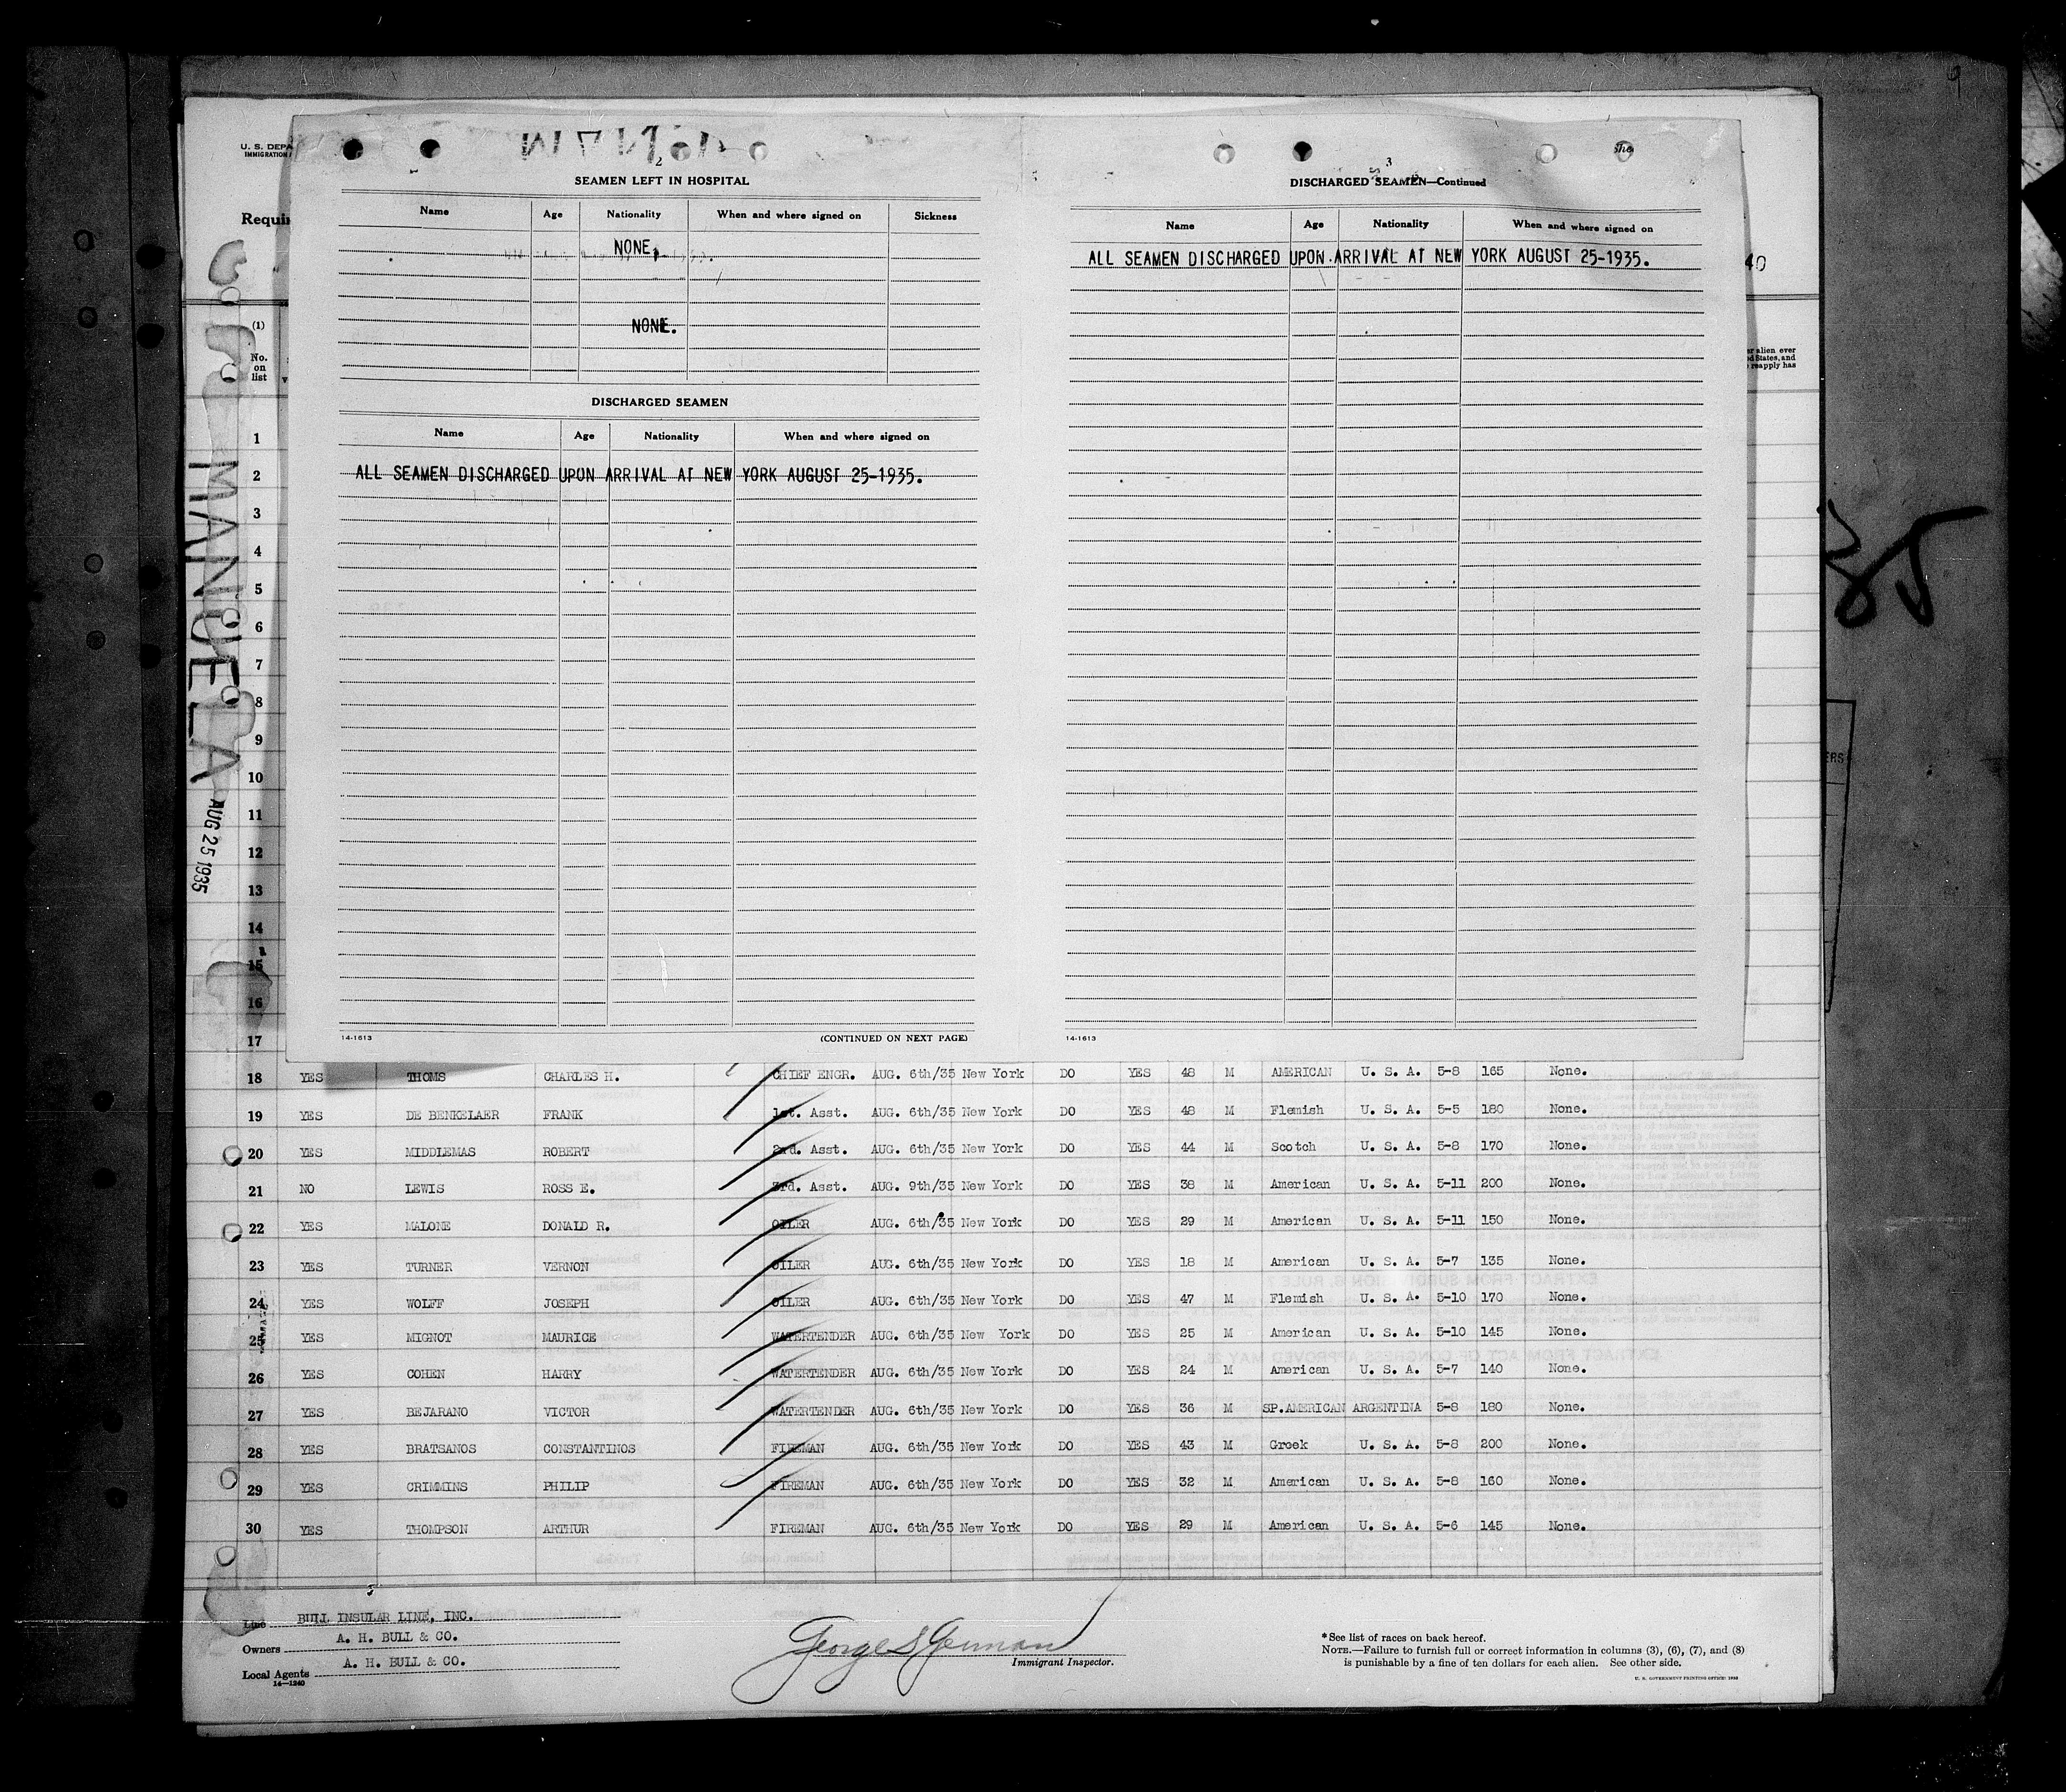 U. S. DEPA
IMMIGRATION
Requir
40
(1)
No.
on
list
er alien ever
ed States, and
reapply has
MANUELA
AUG 25 1935
35
ERS
2
SEAMEN LEFT IN HOSPITAL
Name Age Nationality When and where signed on Sickness
NONE.
NONE.
DISCHARGED SEAMEN
Name Age Nationality When and where signed on
ALL SEAMEN DISCHARGED UPON ARRIVAL AT NEW YORK AUGUST 25-1935.
14-1613 (CONTINUED ON NEXT PAGE)
3
DISCHARGED SEAMEN—Continued
Name Age Nationality When and where signed on
ALL SEAMEN DISCHARGED UPON ARRIVAL AT NEW YORK AUGUST 25-1935.
14-1613
1
2
3
4
5
6
7
8
9
10
11
12
13
14
15
16
17
18 YES THOMS CHARLES H. CHIEF ENGR. AUG. 6th/35 New York DO YES 48 M AMERICAN U. S. A. 5-8 165 None.
19 YES DE BENKELAER FRANK 1st. Asst. AUG. 6th/35 New York DO YES 48 M Flemish U. S. A. 5-5 180 None.
20 YES MIDDLEMAS ROBERT 2rd. Asst. AUG. 6th/35 New York DO YES 44 M Scotch U. S. A. 5-8 170 None.
21 NO LEWIS ROSS E. 3rd. Asst. AUG. 9th/35 New York DO YES 38 M American U. S. A. 5-11 200 None.
22 YES MALONE DONALD R. OILER AUG. 6th/35 New York DO YES 29 M American U. S. A. 5-11 150 None.
23 YES TURNER VERNON OILER AUG. 6th/35 New York DO YES 18 M American U. S. A. 5-7 135 None.
24 YES WOLFF JOSEPH OILER AUG. 6th/35 New York DO YES 47 M Flemish U. S. A. 5-10 170 None.
25 YES MIGNOT MAURICE WATERTENDER AUG. 6th/35 New York DO YES 25 M American U. S. A. 5-10 145 None.
26 YES COHEN HARRY WATERTENDER AUG. 6th/35 New York DO YES 24 M American U. S. A. 5-7 140 None.
27 YES BEJARANO VICTOR WATERTENDER AUG. 6th/35 New York DO YES 36 M SP.AMERICAN ARGENTINA 5-8 180 None.
28 YES BRATSANOS CONSTANTINOS FIREMAN AUG. 6th/35 New York DO YES 43 M Greek U. S. A. 5-8 200 None.
29 YES CRIMMINS PHILIP FIREMAN AUG. 6th/35 New York DO YES 32 M American U. S. A. 5-8 160 None.
30 YES THOMPSON ARTHUR FIREMAN AUG. 6th/35 New York DO YES 29 M American U. S. A. 5-6 145 None.
Line BULL INSULAR LINE, INC.
Owners A. H. BULL & CO.
Local Agents A. H. BULL & CO.
14—1240
George S German
Immigrant Inspector.
*See list of races on back hereof.
NOTE.—Failure to furnish full or correct information in columns (3), (6), (7), and (8)
is punishable by a fine of ten dollars for each alien. See other side.
U. S. GOVERNMENT PRINTING OFFICE: